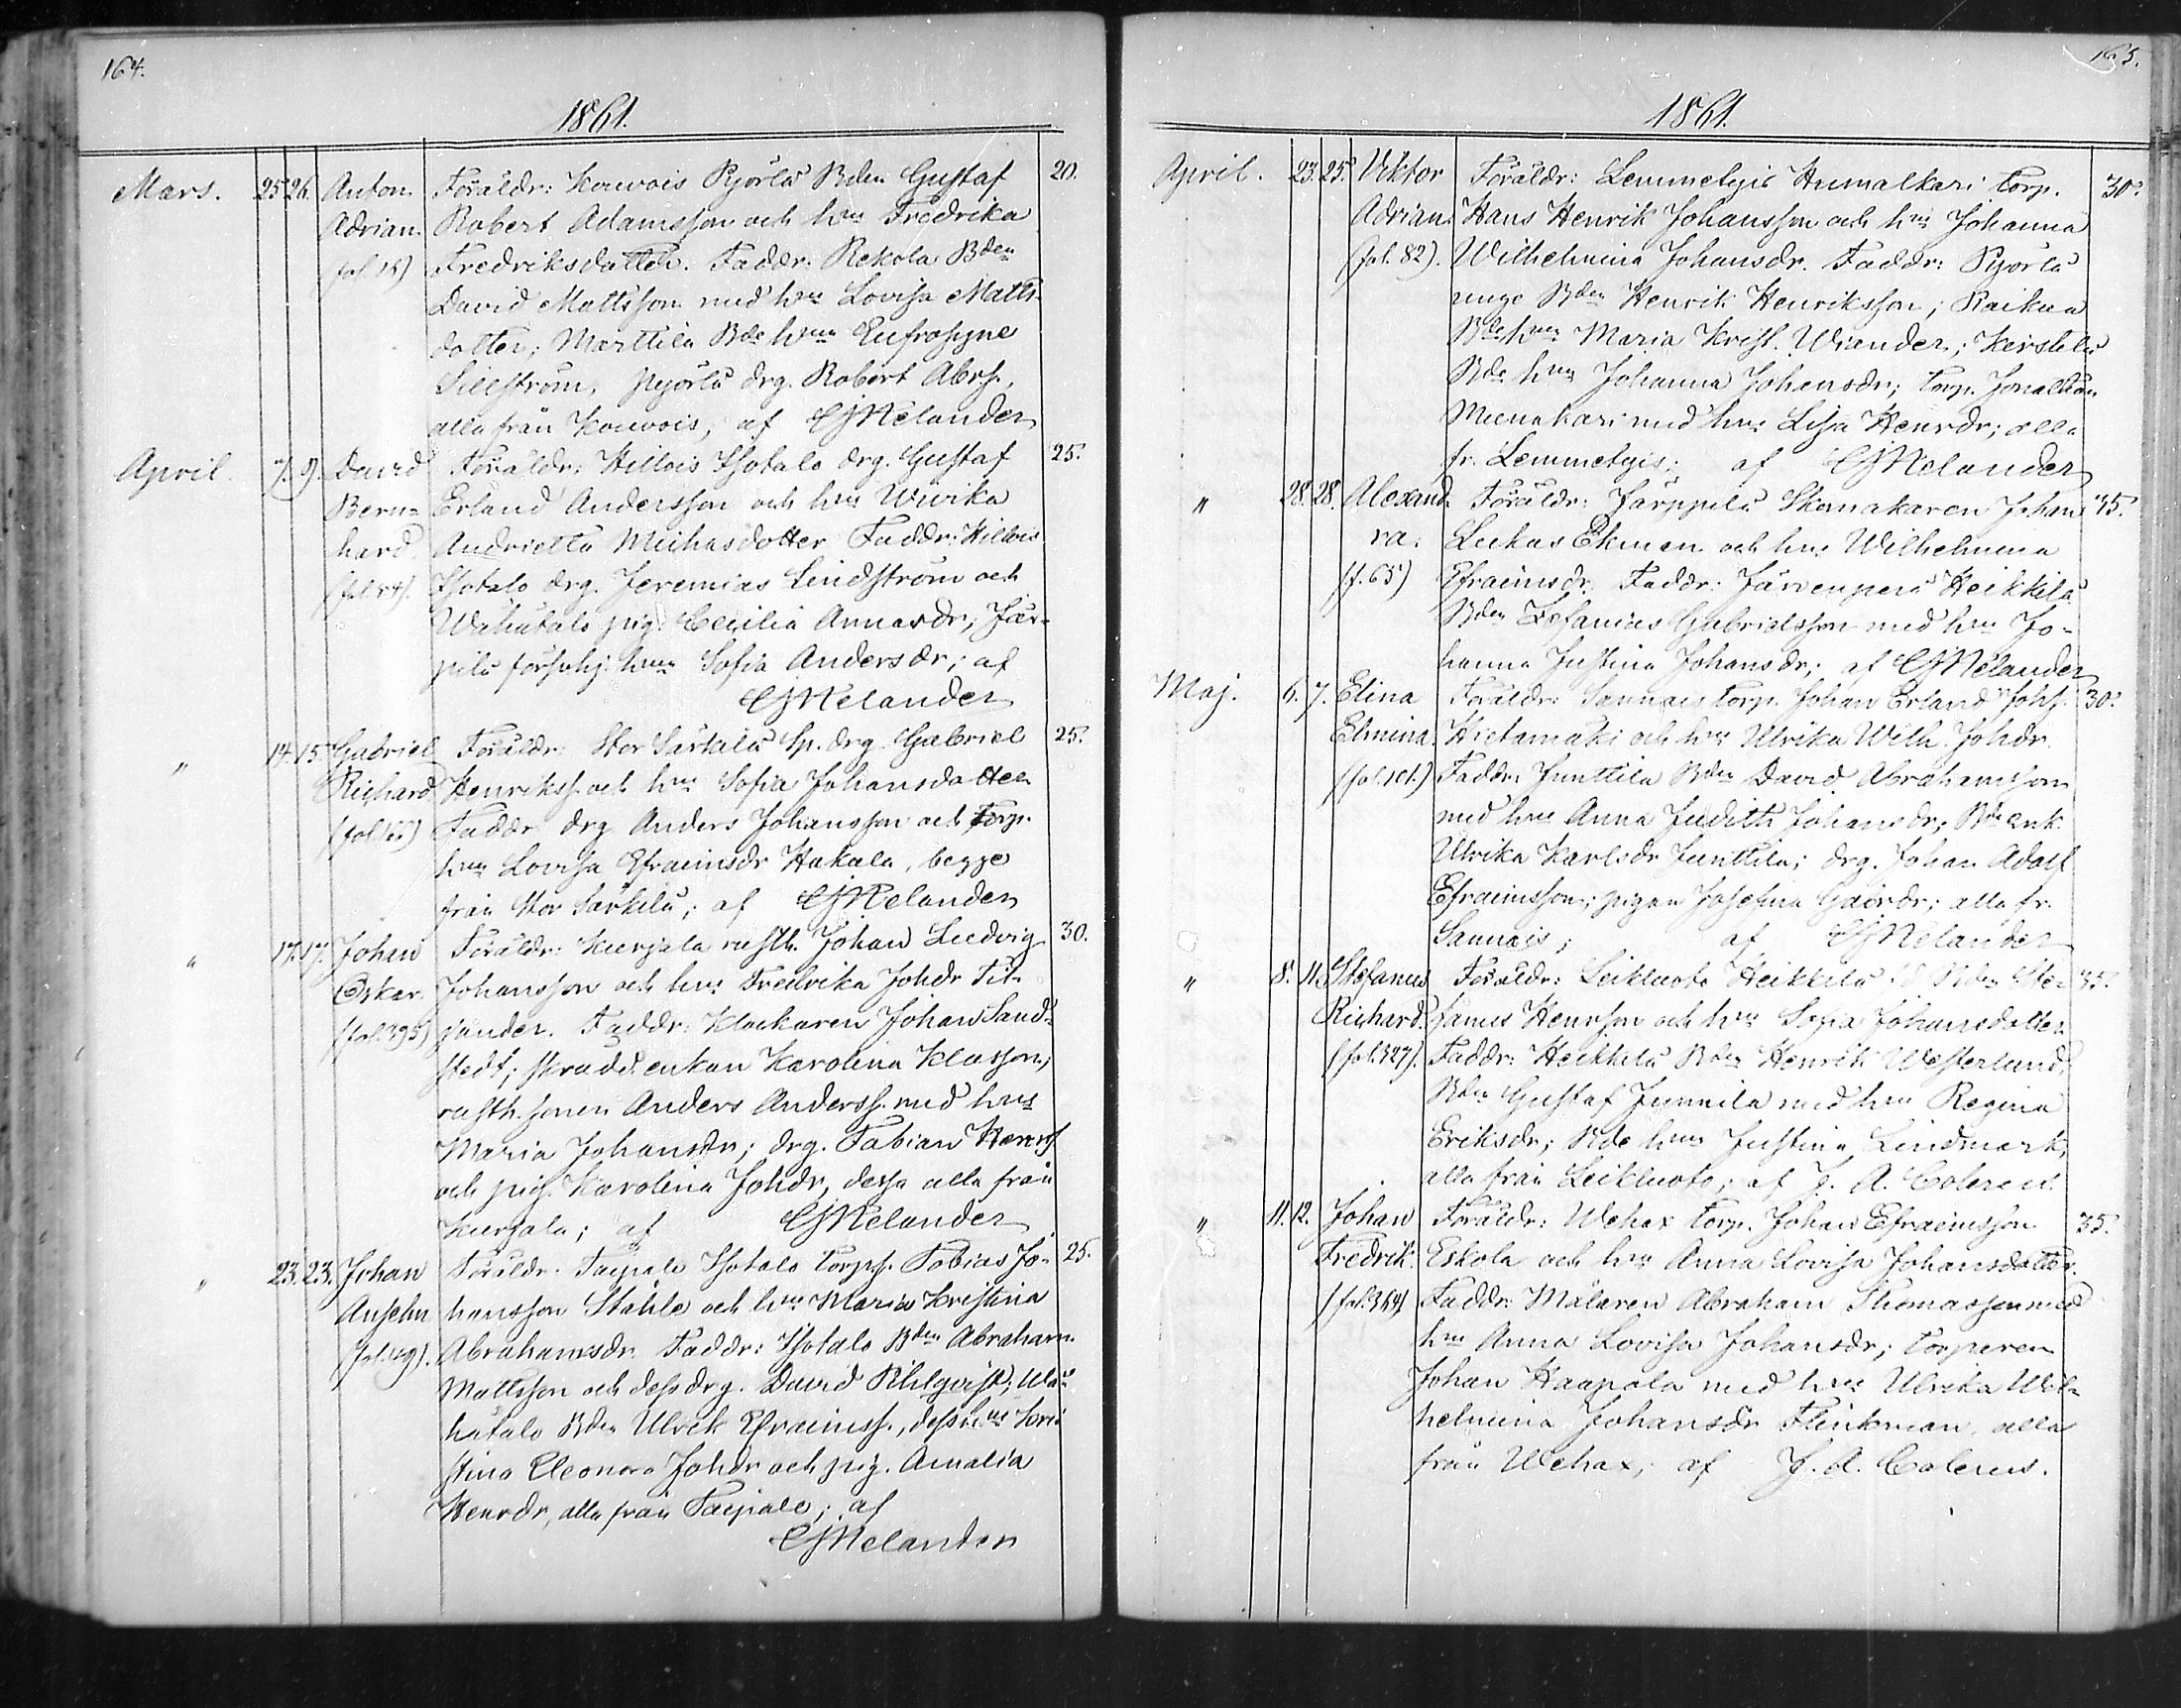 164.
1861.
Mars. 25. 26. Anton Föräldr: Kouvois Pyörlä Bden Gustaf 20.
Adrian. Robert Adamsson och hru Fredrika
(fol. 15) Fredriksdotter. Faddr: Rekola Bden
David Mattsson med hru Lovisa Matts-
dotter; Marttila Bde hrun Eufrosyne
Sillström, Pyörlä drg. Robert Abrs.,
alla från Kouvois; af CJMelander
April. 7. 9. David Föräldr: Hillois Isotalo drg. Gustaf 25.
Bern= Erland Andersson och hru Wivika
hard. Andrietta Michasdotter Faddr: Hillois
Isotalo drg. Jeremias Lindström och
Wähätalo pig. Cecilia Annasdr; Jär-
pilä hru Sofia Andersdr; af
CJMelander
" 14. 15. Gabriel Föräldr: Stor Särkilä Sp. drg. Gabriel 25.
Richard Henrikss. och hru Sofia Johansdotter
Faddr drg Anders Johansson och Torp.
hru Lovisa Efraimsdr Hakala, begge
från Stor Särkilä; af CJMelander
" 17. 17. Johan Föräldr: Kurjala rusth. Johan Ludvig 30.
Oskar. Johansson och hru Fredrika Johdr Sil-
(fol. 395) jander. Faddr: Klockaren Johan Sand-
stedt; skradd. enkan Karolina Klasson;
rusth. sonen Anders Anderss. med hru
Maria Johansdr; drg. Fabian Henrs
och pig. Karolina Johdr, dessa alla från
Kurjala; af CJMelander
" 23. 23. Johan Föräldr: Taipale Isotalo torps. Tobias Jo- 25.
Anselm hansson Ståhle och hru Maria Kristina
Abrahamsdr. Faddr: Isotalo Bden Abraham
Mattsson och dess drg. David Pihlqvist; Wä-
hätalo Bden Ulrik Efraimss., dess hru Kri-
stina Eleonora Johdr och pig. Amalia
Henrdr, alla från Taipale; af
CJMelander
165.
1861.
April. 23. 25. Viktor Föräldr: Lemmetyis Humalkari torp. 30.
Adrian. Hans Henrik Johansson och hru Johanna
(fol. 82). Wilhelmina Johansdr. Faddr: Pyörlä
unge Bden Henrik Henriksson; Raikua
Bde hrun Maria Krist. Wiander; Kerstilä
Bde hru Johanna Johansdr; torp. Jonathan
Munakari med hru Lisa Henrdr; alla
fr. Lemmetyis; af CJMelander
" 28. 28. Alexand- Föräldr: Järppilä Skomakaren Johan 35.
ra. Lukas Ekman och hru Wilhelmina
(f. 65) Efraimsdr. Faddr: Järvenperä Heikkilä
Bden Zefanias Gabrielsson med hru Jo-
hanna Justina Johansdr; af CJMelander
Maj. 6. 7. Elina Föräldr: Sannais torp. Johan Erland Johs. 30.
Elmina. Hietamäki och hru Ulrika Wilh. Johdr.
(fol. 101.) Faddr: Junttila Bden David Abrahamsson
med hru Anna Judith Johansdr; Bde enk.
Ulrika Karlsdr Junttila; drg. Johan Adolf
Efraimsson; pigan Josefina Gabrdr; alla fr.
Sannais; af CJMelander
" 8. 11. Stefanus Föräldr: Leikluoto Heikkilä Bden Ste- 35.
Richard. fanus Henrsson och hru Sofia Johansdotter.
(fol. 327). Faddr: Heikkilä Bden Henrik Westerlund,
Bden Gustaf Junnila med hru Regina
Eriksdr; Bde hru Justina Lindmark,
alla från Leikluoto; af J. A. Colerus.
" 11. 12. Johan Föräldr: Wehax torp. Johan Efraimsson 35.
Fredrik. Eskola och hru Anna Lovisa Johansdotter.
(fol. 364) Faddr: Målaren Abraham Thomasson med
hru Anna Lovisa Johansdr; torparen
Johan Haapala med hru Ulrika Wil-
helmina Johansdr Flinkman, alla
från Wehax, af J. A. Colerus.